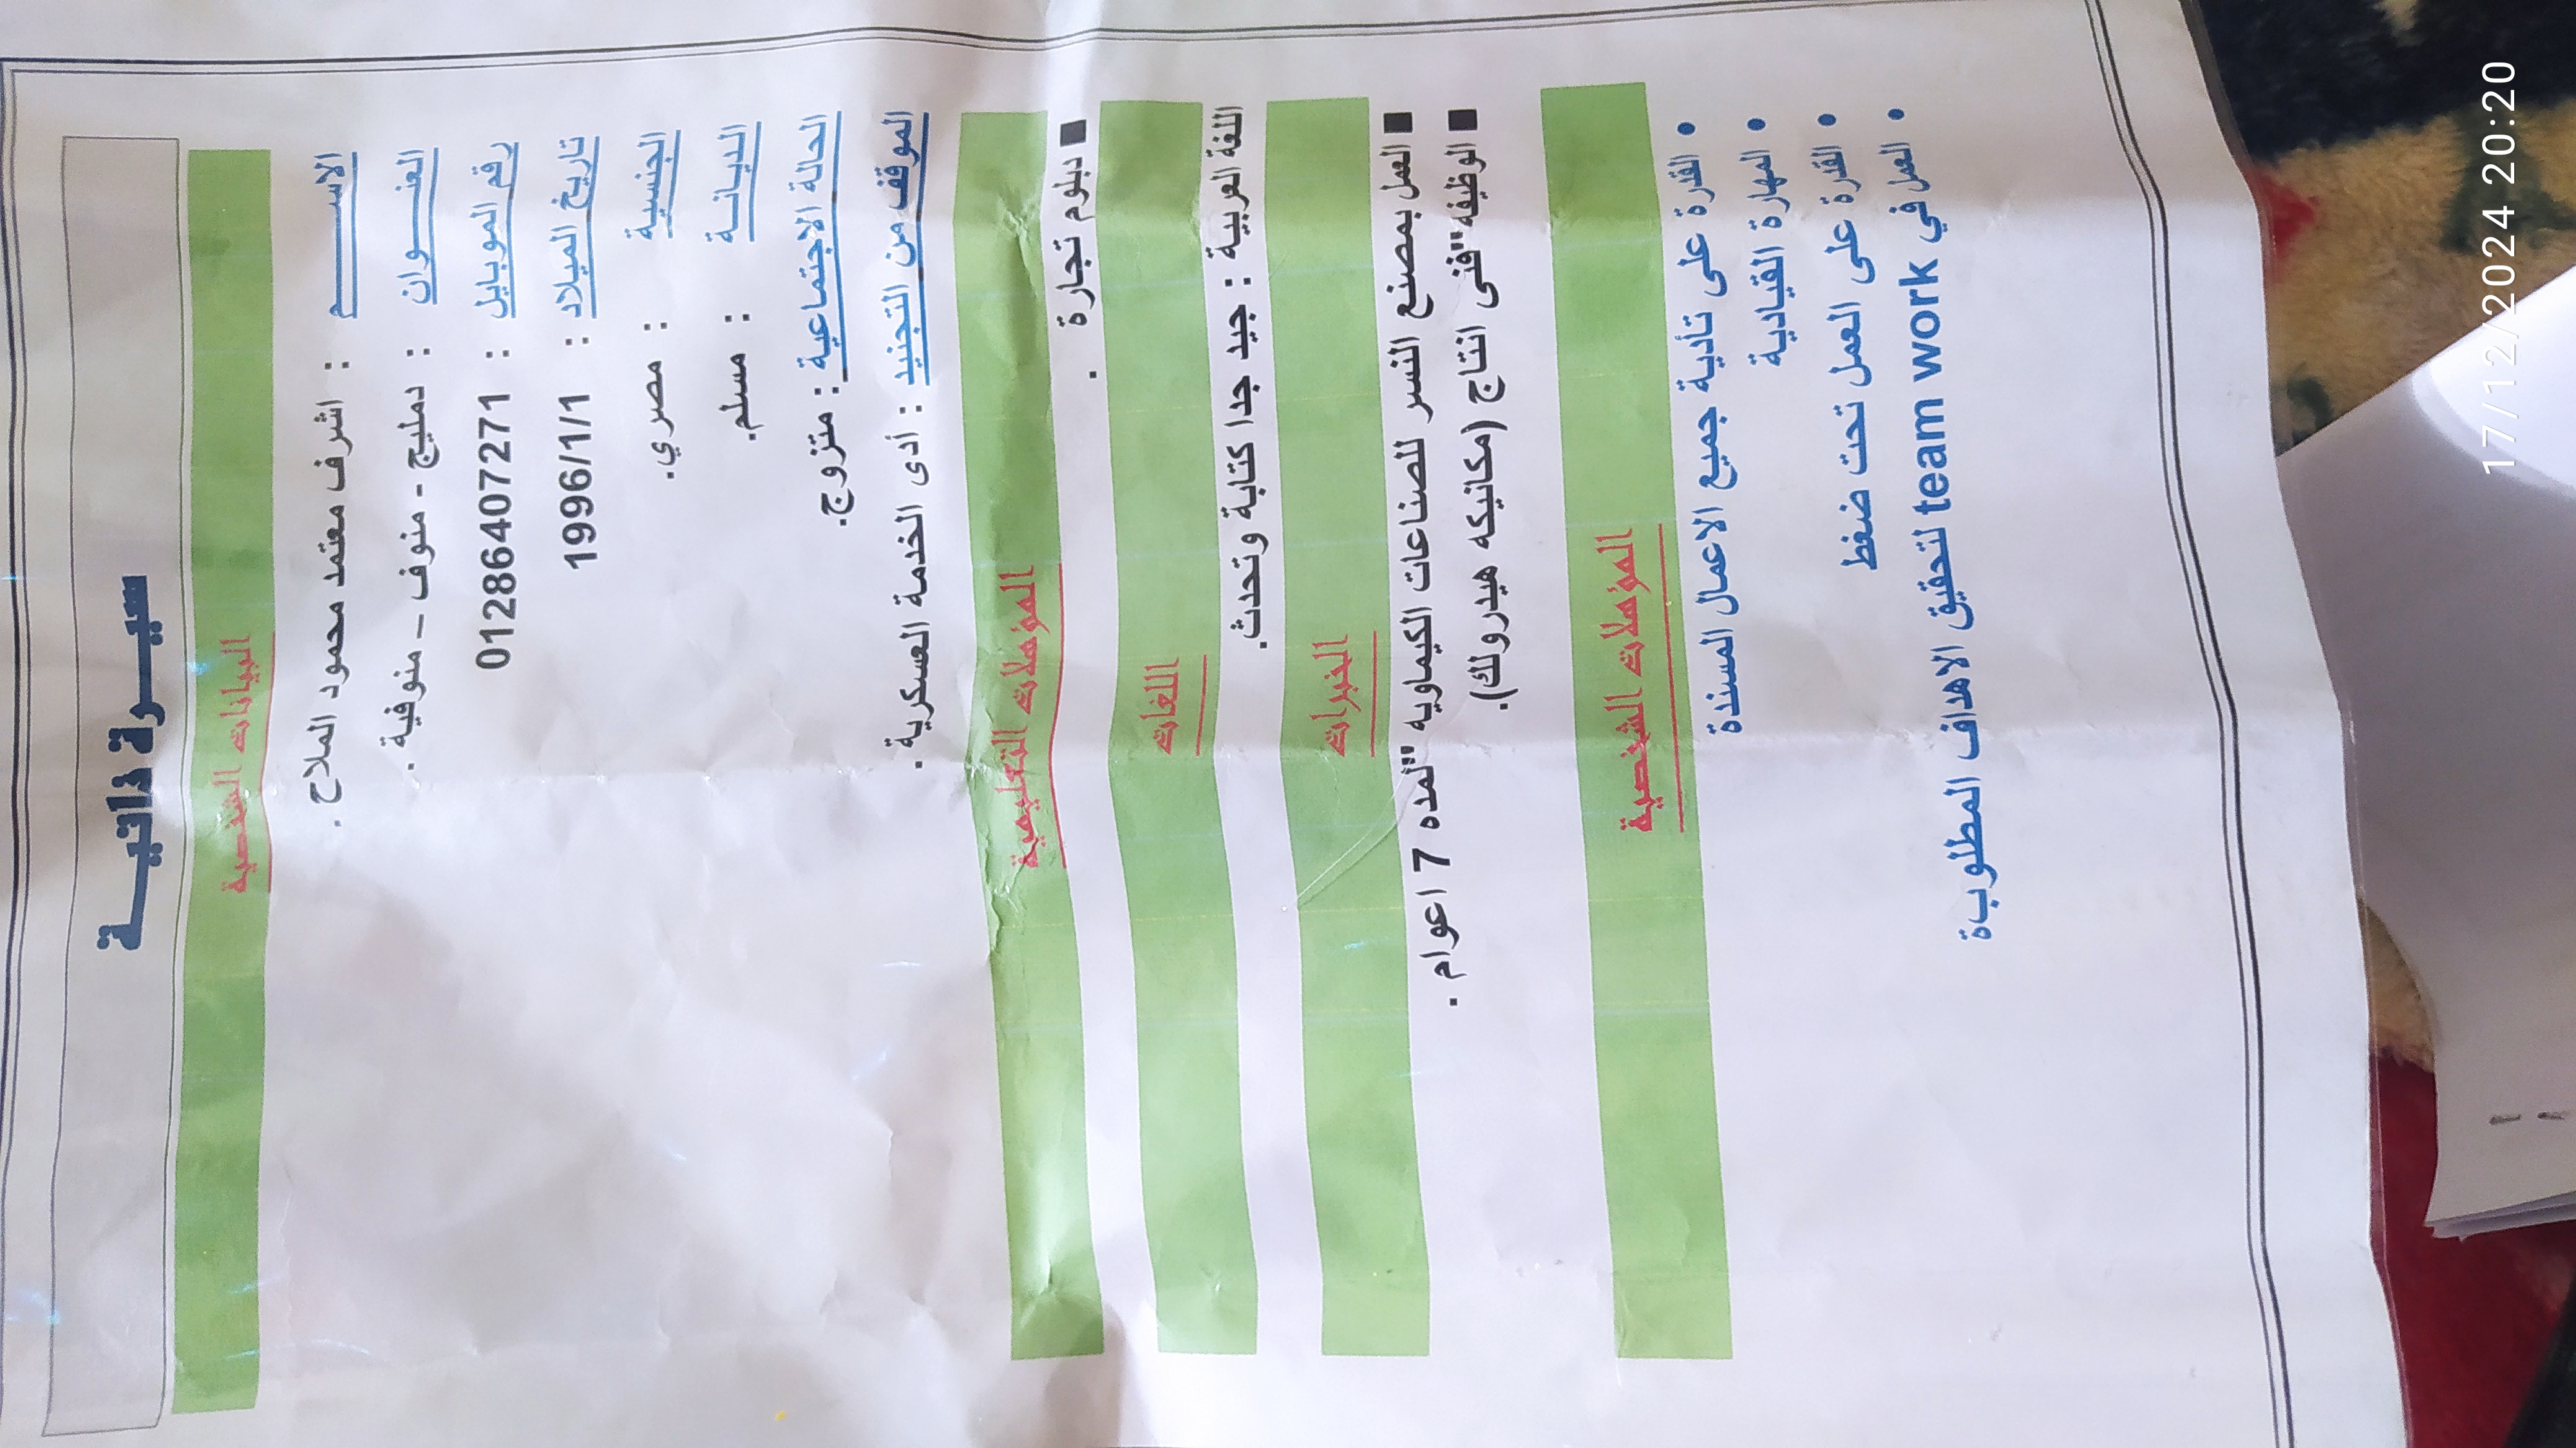 سيـــرة ذاتيـــة
البيانات الشخصية
الاســـــــم : اشرف معتمد محمود الملاح .
العنـــوان : دمليج - منوف – منوفية .
رقم الموبايل : 01286407271
تاريخ الميلاد : 1996/1/1
الجنسية : مصري.
الديانــة : مسلم.
الحالة الاجتماعية : متزوج.
الموقف من التجنيد : أدى الخدمة العسكرية .
المؤهلات التعليمية
■ دبلوم تجارة .
اللغات
اللغة العربية : جيد جدا كتابة وتحدث.
الخبرات
■ العمل بمصنع النسر للصناعات الكيماويه "لمده 7 اعوام .
■ الوظيفه"فنى انتاج (مكانيكه هيدرولك).
المؤهلات الشخصية
• القدرة على تأدية جميع الاعمال المسندة
• المهارة القيادية
• القدرة على العمل تحت ضغط
• العمل في team work لتحقيق الاهداف المطلوبة
17/12/2024 20:20